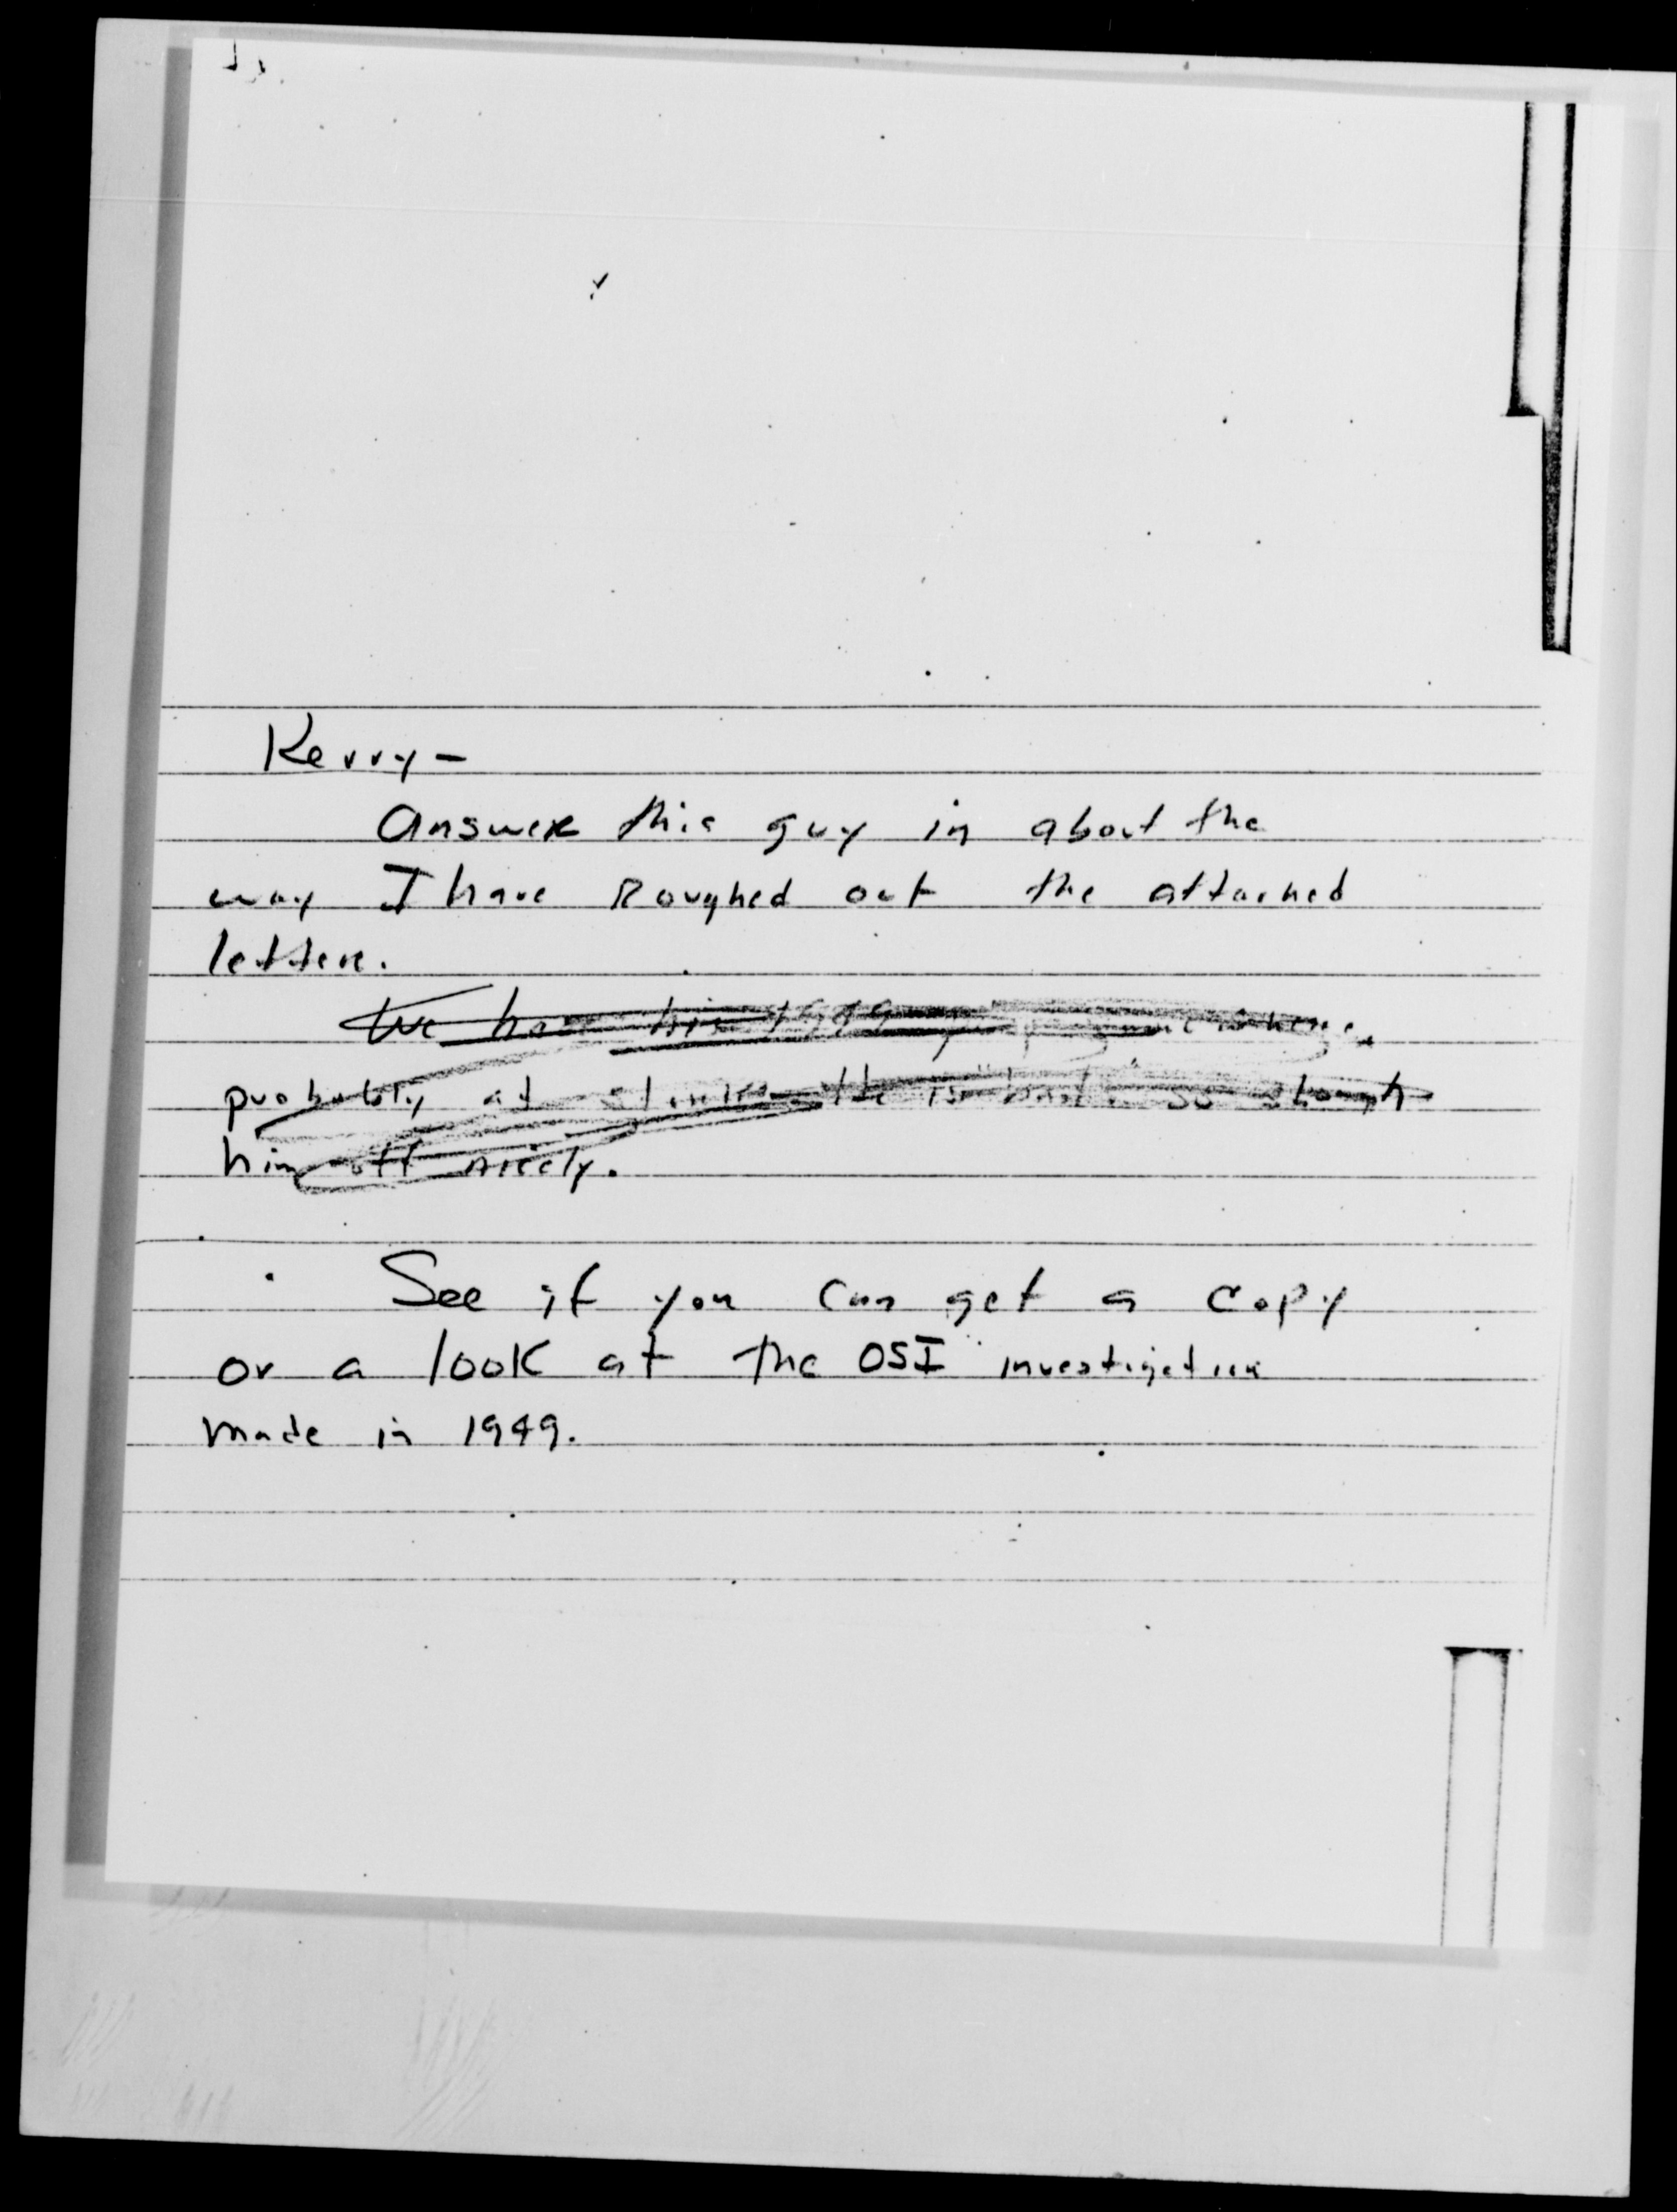 Kerry-
Answer this guy in about the
way I have Roughed out the attached
letter.
We have his 1949
probably at
him off nicely.
See if you can get a copy
or a look at the OSI investigation
made in 1949.